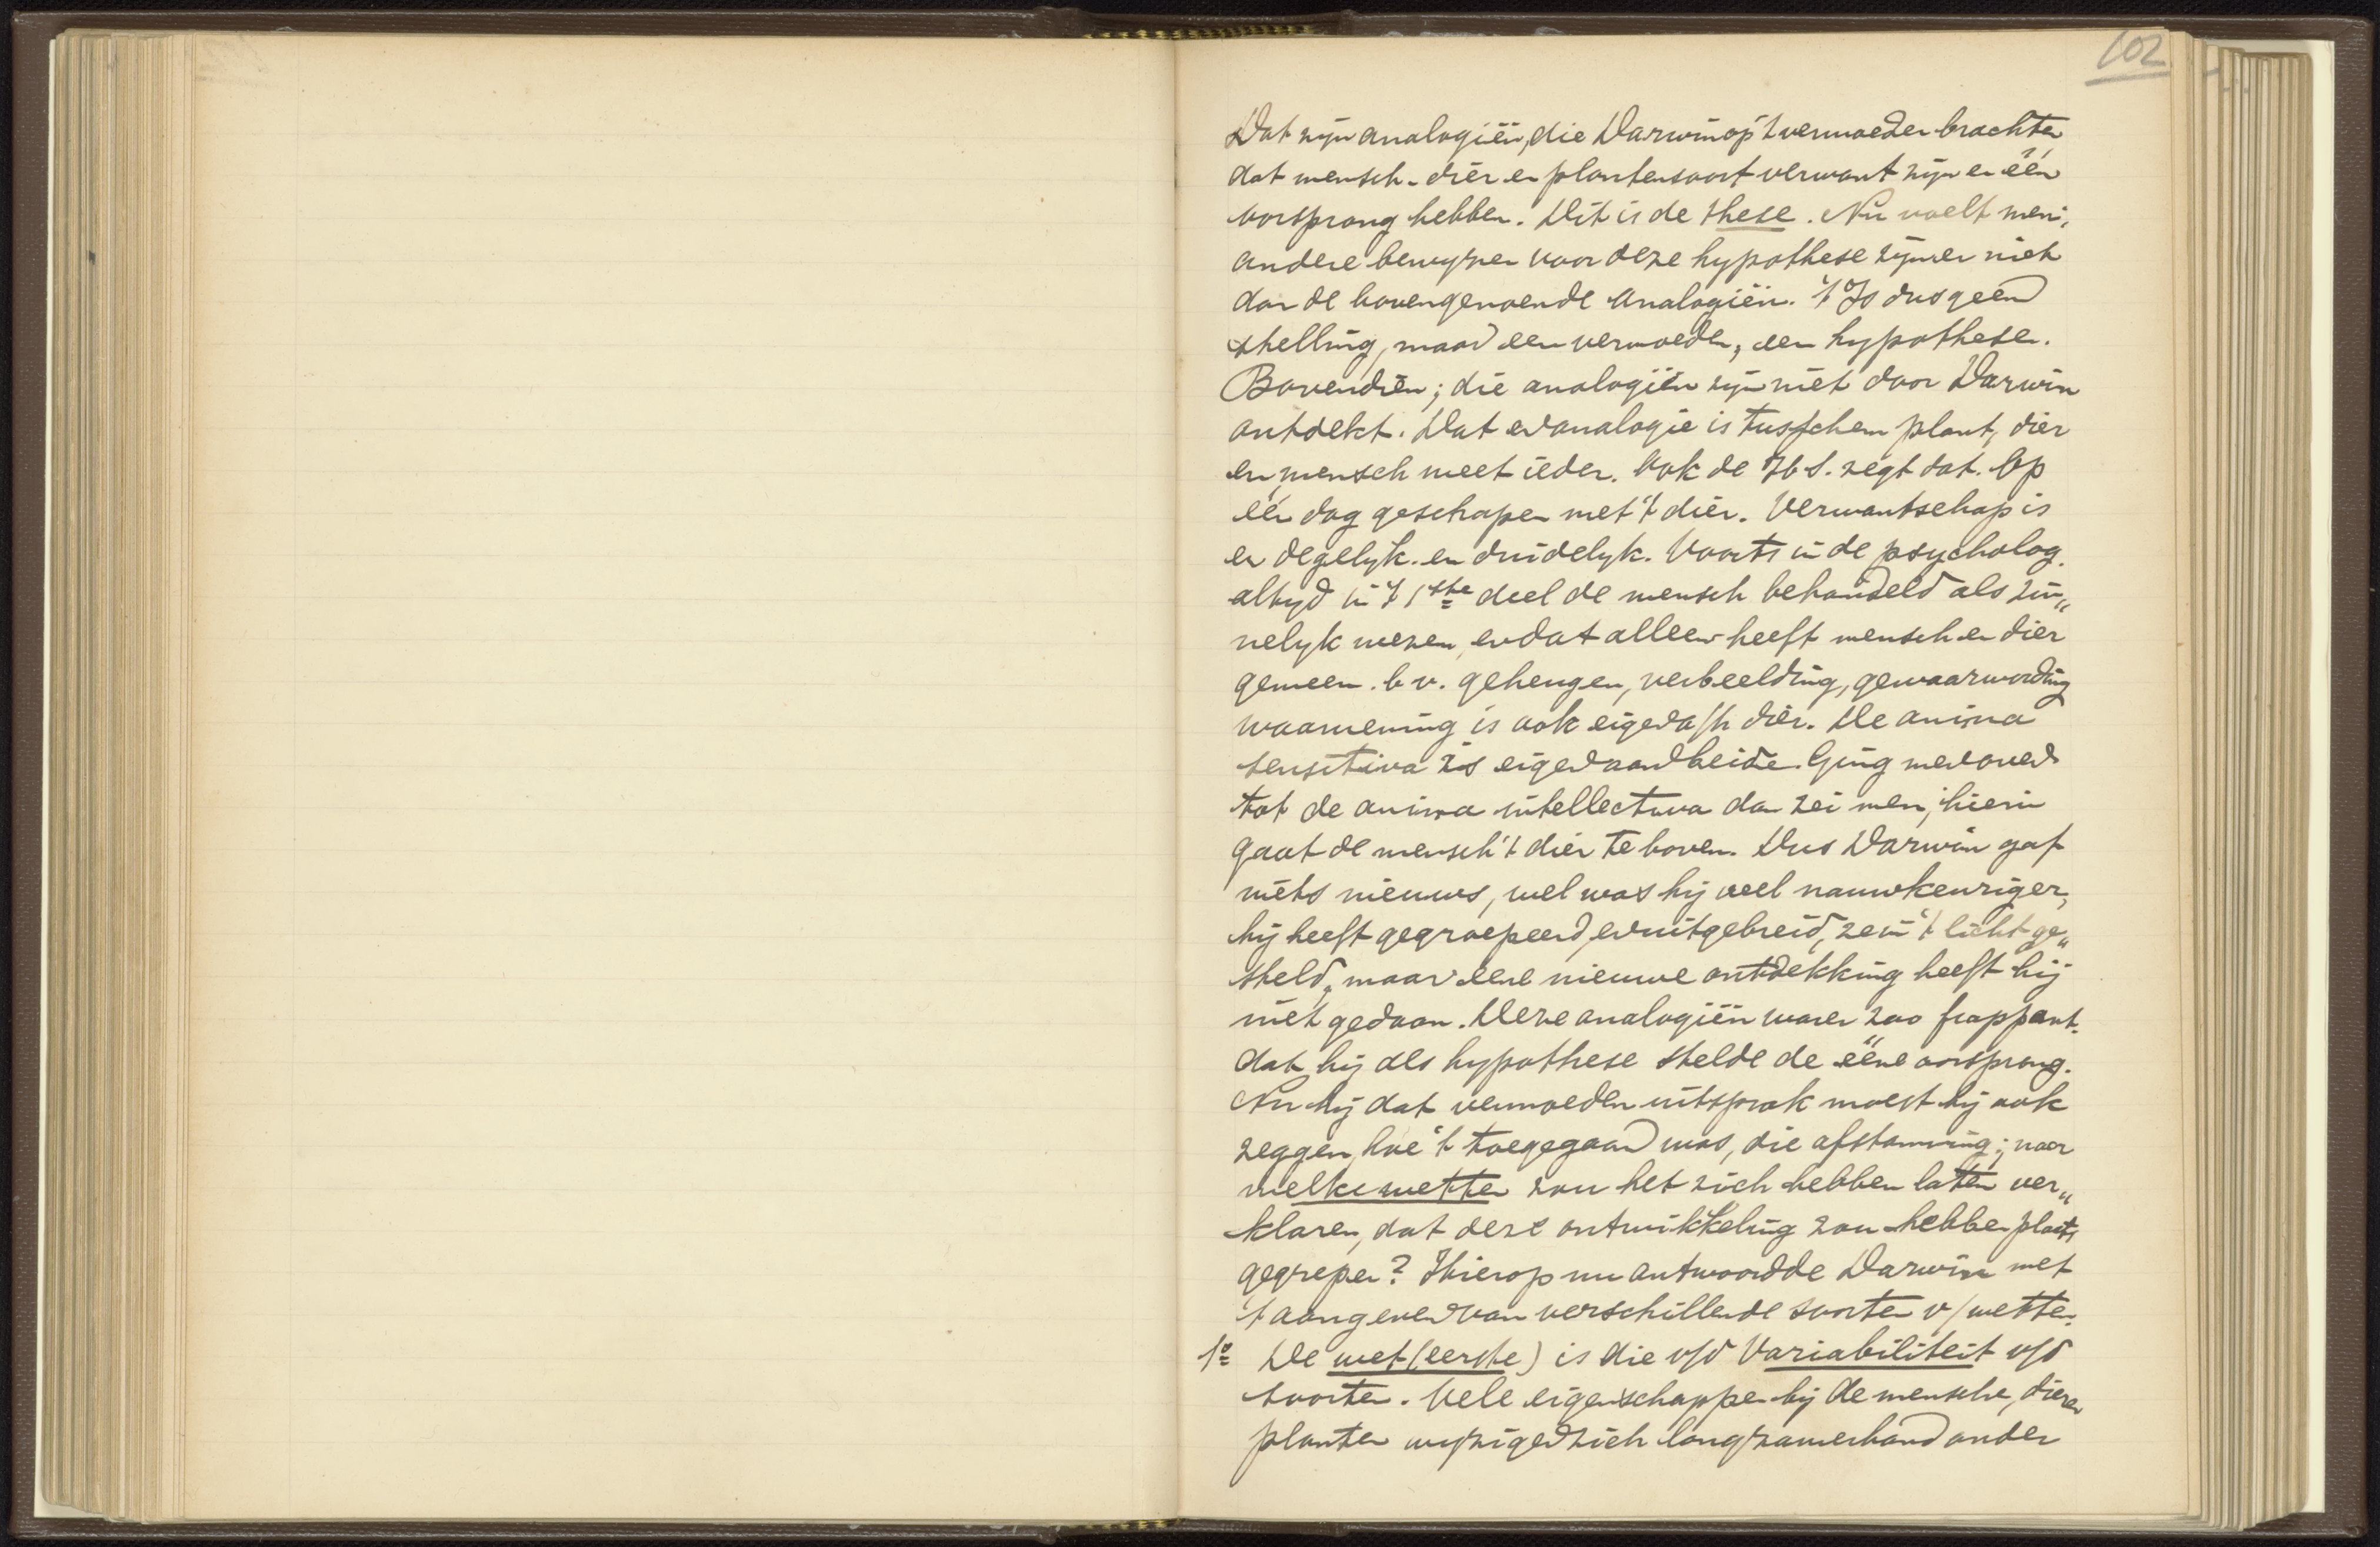 102
Dat zijn analogiën, die Darwin op 't vermoeden brachten
dat mensch- dier en plantensoort verwant zijn en één
oorsprong hebben. Dit is de these. Nu voelt men,
andere bewyzen voor deze hypothese zijn er niet
dan de bovengenoemde analogiën. 't Is dus geen
stelling, maar een vermoeden, een hypothese.
Bovendien; die analogiën zijn niet door Darwin
ontdekt. Dat er analogie is tusschen plant, dier
en mensch weet ieder. Ook de H.S. zegt dat. Op
één dag geschapen met 't dier. Verwantschap is
er degelyk en duidelyk. Voorts in de psycholog.
altyd in 't 1ste deel de mensch behandeld als zin„
nelyk wezen, en dat alleen heeft mensch en dier
gemeen. b.v. geheugen, verbeelding, gewaarwording
waarneming is ook eigen a/h dier. De anima
sensitiva is eigen aan beide. Ging men over
tot de anima intellectiva dan zei men, hierin
gaat de mensch 't dier te boven. Dus Darwin gaf
niets nieuws, wel was hij veel nauwkeuriger,
hij heeft gegroepeerd, en uitgebreid, ze in 't licht ge„
steld, maar eene nieuwe ontdekking heeft hij
niet gedaan. Deze analogiën waren zoo frappant.
dat hij als hypothese stelde de ééne oorsprong.
Nu hij dat vermoeden uitsprak moest hij ook
zeggen, hoe 't toegegaan was, die afstamming; naar
welke wetten zou het zich hebben laten ver„
klaren, dat deze ontwikkeling zou hebben plaats
gegrepen? Hierop nu antwoordde Darwin met
't aangeven van verschillende soorten v/ wetten.
1o De wet (eerste) is die v/d Variabiliteit v/d
soorten. Vele eigenschappen bij de menschen, dieren
planten wyzigen zich langzamerhand onder